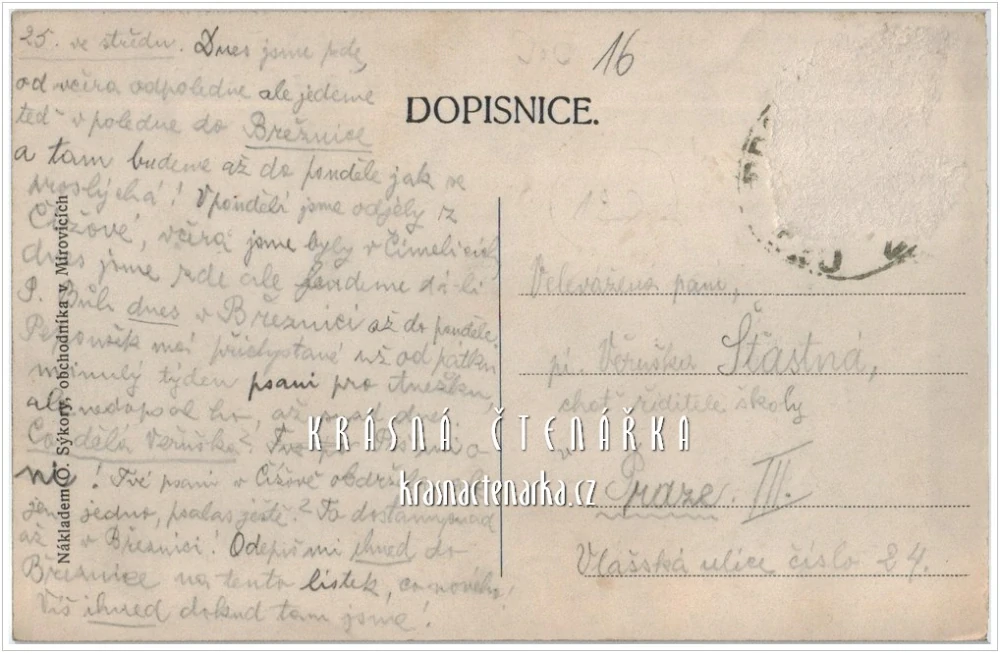 25. ve středu. Dnes jsme zde,
od včera odpoledne ale jedeme
teď v poledne do Březnice
a tam budeme až do ponděle jak se
proslýchá! V pondělí jsme odjely z
Čížové, včera jsme byly v Čimelicích,
dnes jsme zde ale budeme dá-li
P. Bůh dnes v Březnici až do ponděle.
má přichystané už od pátku
minulý týden psaní pro Anežku,
ale nedopsal ho, až snad dnes.
Co dělá Veruška?
Tvé psaní v Čížové
jen jedno, psalas ještě? To dostanu snad
až v Březnici! Odepiš mi ihned do
Březnice na tento lístek, co nového!
Víš ihned dokud tam jsme!
Nákladem O. Sýkory, obchodníka v Mirovicích
16
DOPISNICE.
Velevážená paní,
pí. Věruška Šťastná,
choť ředitele školy
v
Praze. III.
Vlašská ulice číslo 24.
KRÁSNÁ ČTENÁŘKA
krasnactenarka.cz